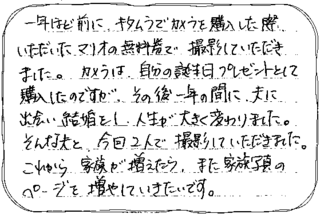 一年ほど前に、キタムラでカメラを購入した際
いただいた、マリオの無料券で撮影していただき
ました。カメラは、自分の誕生日プレゼントとして
購入したのですが、その後一年の間に、夫に
出会い結婚をし、人生が大きく変わりました。
そんな夫と、今回2人で撮影していただきました。
これから家族が増えたら、また家族写真の
ページを増やしていきたいです。